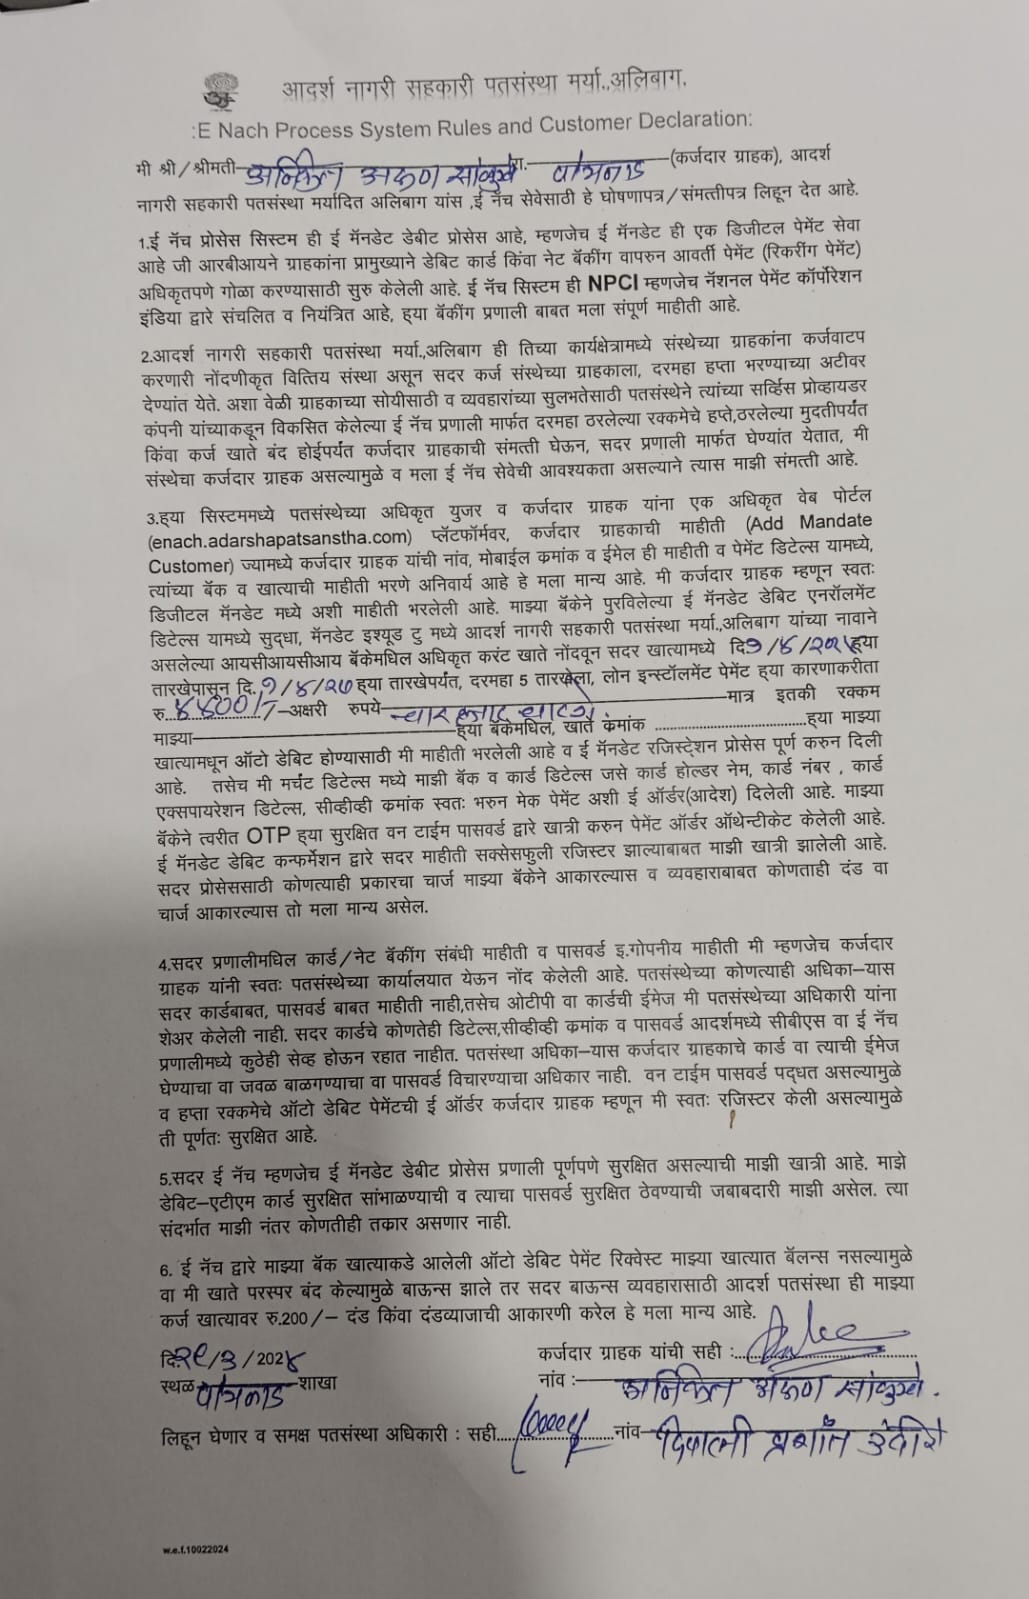 आदर्श नागरी सहकारी पतसंस्था मर्या.,अलिबाग.
:E Nach Process System Rules and Customer Declaration:
मी श्री/श्रीमती अनिकेत अरुण साळुंखे रा. पोयनाड (कर्जदार ग्राहक), आदर्श
नागरी सहकारी पतसंस्था मर्यादित अलिबाग यांस ,ई नॅच सेवेसाठी हे घोषणापत्र/संमत्तीपत्र लिहून देत आहे.
1.ई नॅच प्रोसेस सिस्टम ही ई मॅनडेट डेबीट प्रोसेस आहे, म्हणजेच ई मॅनडेट ही एक डिजीटल पेमेंट सेवा
आहे जी आरबीआयने ग्राहकांना प्रामुख्याने डेबिट कार्ड किंवा नेट बॅकींग वापरुन आवर्ती पेमेंट (रिकरींग पेमेंट)
अधिकृतपणे गोळा करण्यासाठी सुरु केलेली आहे. ई नॅच सिस्टम ही NPCI म्हणजेच नॅशनल पेमेंट कॉर्पोरेशन
इंडिया द्वारे संचलित व नियंत्रित आहे, ह्या बॅकींग प्रणाली बाबत मला संपूर्ण माहीती आहे.
2.आदर्श नागरी सहकारी पतसंस्था मर्या.,अलिबाग ही तिच्या कार्यक्षेत्रामध्ये संस्थेच्या ग्राहकांना कर्जवाटप
करणारी नोंदणीकृत वित्तिय संस्था असून सदर कर्ज संस्थेच्या ग्राहकाला, दरमहा हप्ता भरण्याच्या अटीवर
देण्यांत येते. अशा वेळी ग्राहकाच्या सोयीसाठी व व्यवहारांच्या सुलभतेसाठी पतसंस्थेने त्यांच्या सर्व्हिस प्रोव्हायडर
कंपनी यांच्याकडून विकसित केलेल्या ई नॅच प्रणाली मार्फत दरमहा ठरलेल्या रक्कमेचे हप्ते,ठरलेल्या मुदतीपर्यंत
किंवा कर्ज खाते बंद होईपर्यंत कर्जदार ग्राहकाची संमत्ती घेऊन, सदर प्रणाली मार्फत घेण्यांत येतात, मी
संस्थेचा कर्जदार ग्राहक असल्यामुळे व मला ई नॅच सेवेची आवश्यकता असल्याने त्यास माझी संमत्ती आहे.
3.ह्या सिस्टममध्ये पतसंस्थेच्या अधिकृत युजर व कर्जदार ग्राहक यांना एक अधिकृत वेब पोर्टल
(enach.adarshapatsanstha.com) प्लॅटफॉर्मवर, कर्जदार ग्राहकाची माहीती (Add Mandate
Customer) ज्यामध्ये कर्जदार ग्राहक यांची नांव, मोबाईल क्रमांक व ईमेल ही माहीती व पेमेंट डिटेल्स यामध्ये,
त्यांच्या बॅक व खात्याची माहीती भरणे अनिवार्य आहे हे मला मान्य आहे. मी कर्जदार ग्राहक म्हणून स्वतः
डिजीटल मॅनडेट मध्ये अशी माहीती भरलेली आहे. माझ्या बॅकेने पुरविलेल्या ई मॅनडेट डेबिट एनरॉलमेंट
डिटेल्स यामध्ये सुद्धा, मॅनडेट इश्यूड टु मध्ये आदर्श नागरी सहकारी पतसंस्था मर्या.,अलिबाग यांच्या नावाने
असलेल्या आयसीआयसीआय बॅकेमधिल अधिकृत करंट खाते नोंदवून सदर खात्यामध्ये दि. ह्या
तारखेपासून दि. १/४/२७ ह्या तारखेपर्यंत, दरमहा 5 तारखेला, लोन इन्स्टॉलमेंट पेमेंट ह्या कारणाकरीता
रु. ४४००/- /-अक्षरी रुपये चार हजार चारशे. मात्र इतकी रक्कम
माझ्या ह्या बॅकेमधिल, खाते क्रमांक ह्या माझ्या
खात्यामधून ऑटो डेबिट होण्यासाठी मी माहीती भरलेली आहे व ई मॅनडेट रजिस्ट्रेशन प्रोसेस पूर्ण करुन दिली
आहे. तसेच मी मर्चंट डिटेल्स मध्ये माझी बॅक व कार्ड डिटेल्स जसे कार्ड होल्डर नेम, कार्ड नंबर , कार्ड
एक्सपायरेशन डिटेल्स, सीव्हीव्ही क्रमांक स्वतः भरुन मेक पेमेंट अशी ई ऑर्डर(आदेश) दिलेली आहे. माझ्या
बॅकेने त्वरीत OTP ह्या सुरक्षित वन टाईम पासवर्ड द्वारे खात्री करुन पेमेंट ऑर्डर ऑथेन्टीकेट केलेली आहे.
ई मॅनडेट डेबिट कन्फर्मेशन द्वारे सदर माहीती सक्सेसफुली रजिस्टर झाल्याबाबत माझी खात्री झालेली आहे.
सदर प्रोसेससाठी कोणत्याही प्रकारचा चार्ज माझ्या बॅकेने आकारल्यास व व्यवहाराबाबत कोणताही दंड वा
चार्ज आकारल्यास तो मला मान्य असेल.
4.सदर प्रणालीमधिल कार्ड/नेट बॅकींग संबंधी माहीती व पासवर्ड इ.गोपनीय माहीती मी म्हणजेच कर्जदार
ग्राहक यांनी स्वतः पतसंस्थेच्या कार्यालयात येऊन नोंद केलेली आहे. पतसंस्थेच्या कोणत्याही अधिका–यास
सदर कार्डबाबत, पासवार्ड बाबत माहीती नाही,तसेच ओटीपी वा कार्डची ईमेज मी पतसंस्थेच्या अधिकारी यांना
शेअर केलेली नाही. सदर कार्डचे कोणतेही डिटेल्स,सीव्हीव्ही क्रमांक व पासवर्ड आदर्शमध्ये सीबीएस वा ई नॅच
प्रणालीमध्ये कुठेही सेव्ह होऊन रहात नाहीत. पतसंस्था अधिका–यास कर्जदार ग्राहकाचे कार्ड वा त्याची ईमेज
घेण्याचा वा जवळ बाळगण्याचा वा पासवर्ड विचारण्याचा अधिकार नाही. वन टाईम पासवर्ड पद्धत असल्यामुळे
व हप्ता रक्कमेचे ऑटो डेबिट पेमेंटची ई ऑर्डर कर्जदार ग्राहक म्हणून मी स्वतः रजिस्टर केली असल्यामुळे
ती पूर्णतः सुरक्षित आहे.
5.सदर ई नॅच म्हणजेच ई मॅनडेट डेबीट प्रोसेस प्रणाली पूर्णपणे सुरक्षित असल्याची माझी खात्री आहे. माझे
डेबिट–एटीएम कार्ड सुरक्षित सांभाळण्याची व त्याचा पासवर्ड सुरक्षित ठेवण्याची जबाबदारी माझी असेल. त्या
संदर्भात माझी नंतर कोणतीही तक्रार असणार नाही.
6. ई नॅच द्वारे माझ्या बॅक खात्याकडे आलेली ऑटो डेबिट पेमेंट रिक्वेस्ट माझ्या खात्यात बॅलन्स नसल्यामुळे
वा मी खाते परस्पर बंद केल्यामुळे बाऊन्स झाले तर सदर बाऊन्स व्यवहारासाठी आदर्श पतसंस्था ही माझ्या
कर्ज खात्यावर रु.200/– दंड किंवा दंडव्याजाची आकारणी करेल हे मला मान्य आहे.
दि. २८/३/202४ कर्जदार ग्राहक यांची सही :
स्थळ पोयनाड शाखा नांव :– अनिकेत अरुण साळुंखे.
लिहून घेणार व समक्ष पतसंस्था अधिकारी : सही नांव दिपाली प्रशांत
w.e.f.10022024